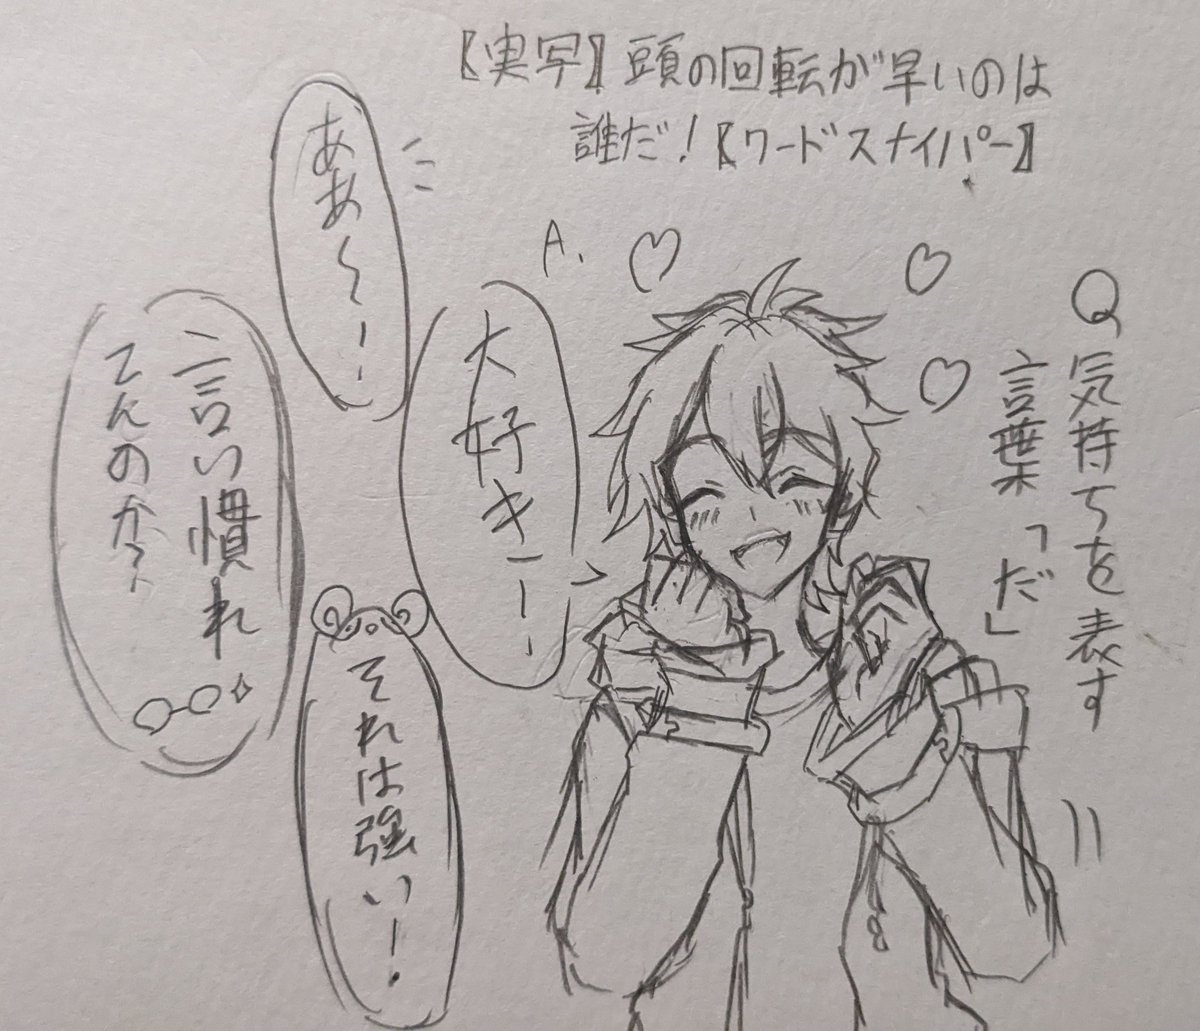 【実写】頭の回転が早いのは
誰だ！【ワードスナイパー】
Q.気持ちを表す
言葉「だ」
A.
大好きー！
ああ～！
言い慣れ
てんのか？
それは強い！